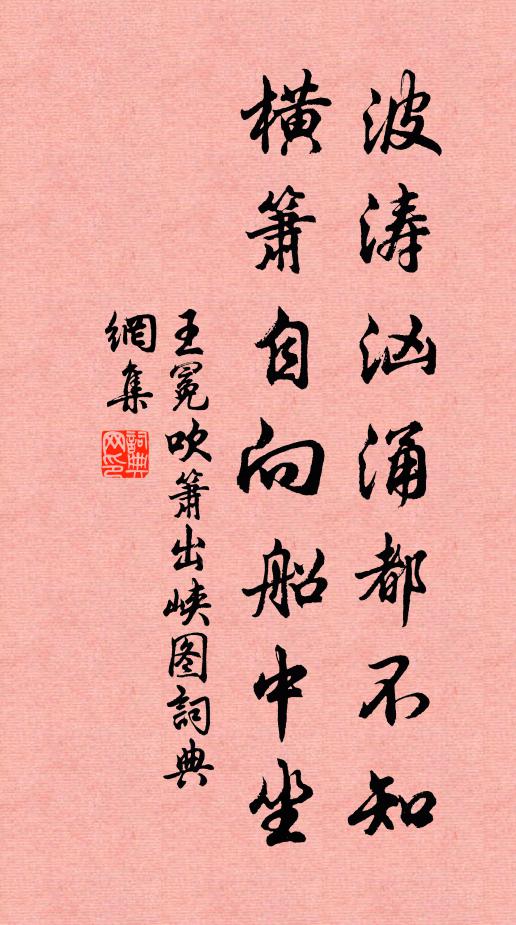 波涛汹涌都不知
横箫自向船中坐
王冕吹箫出峡图詞典
網集
詞典网印